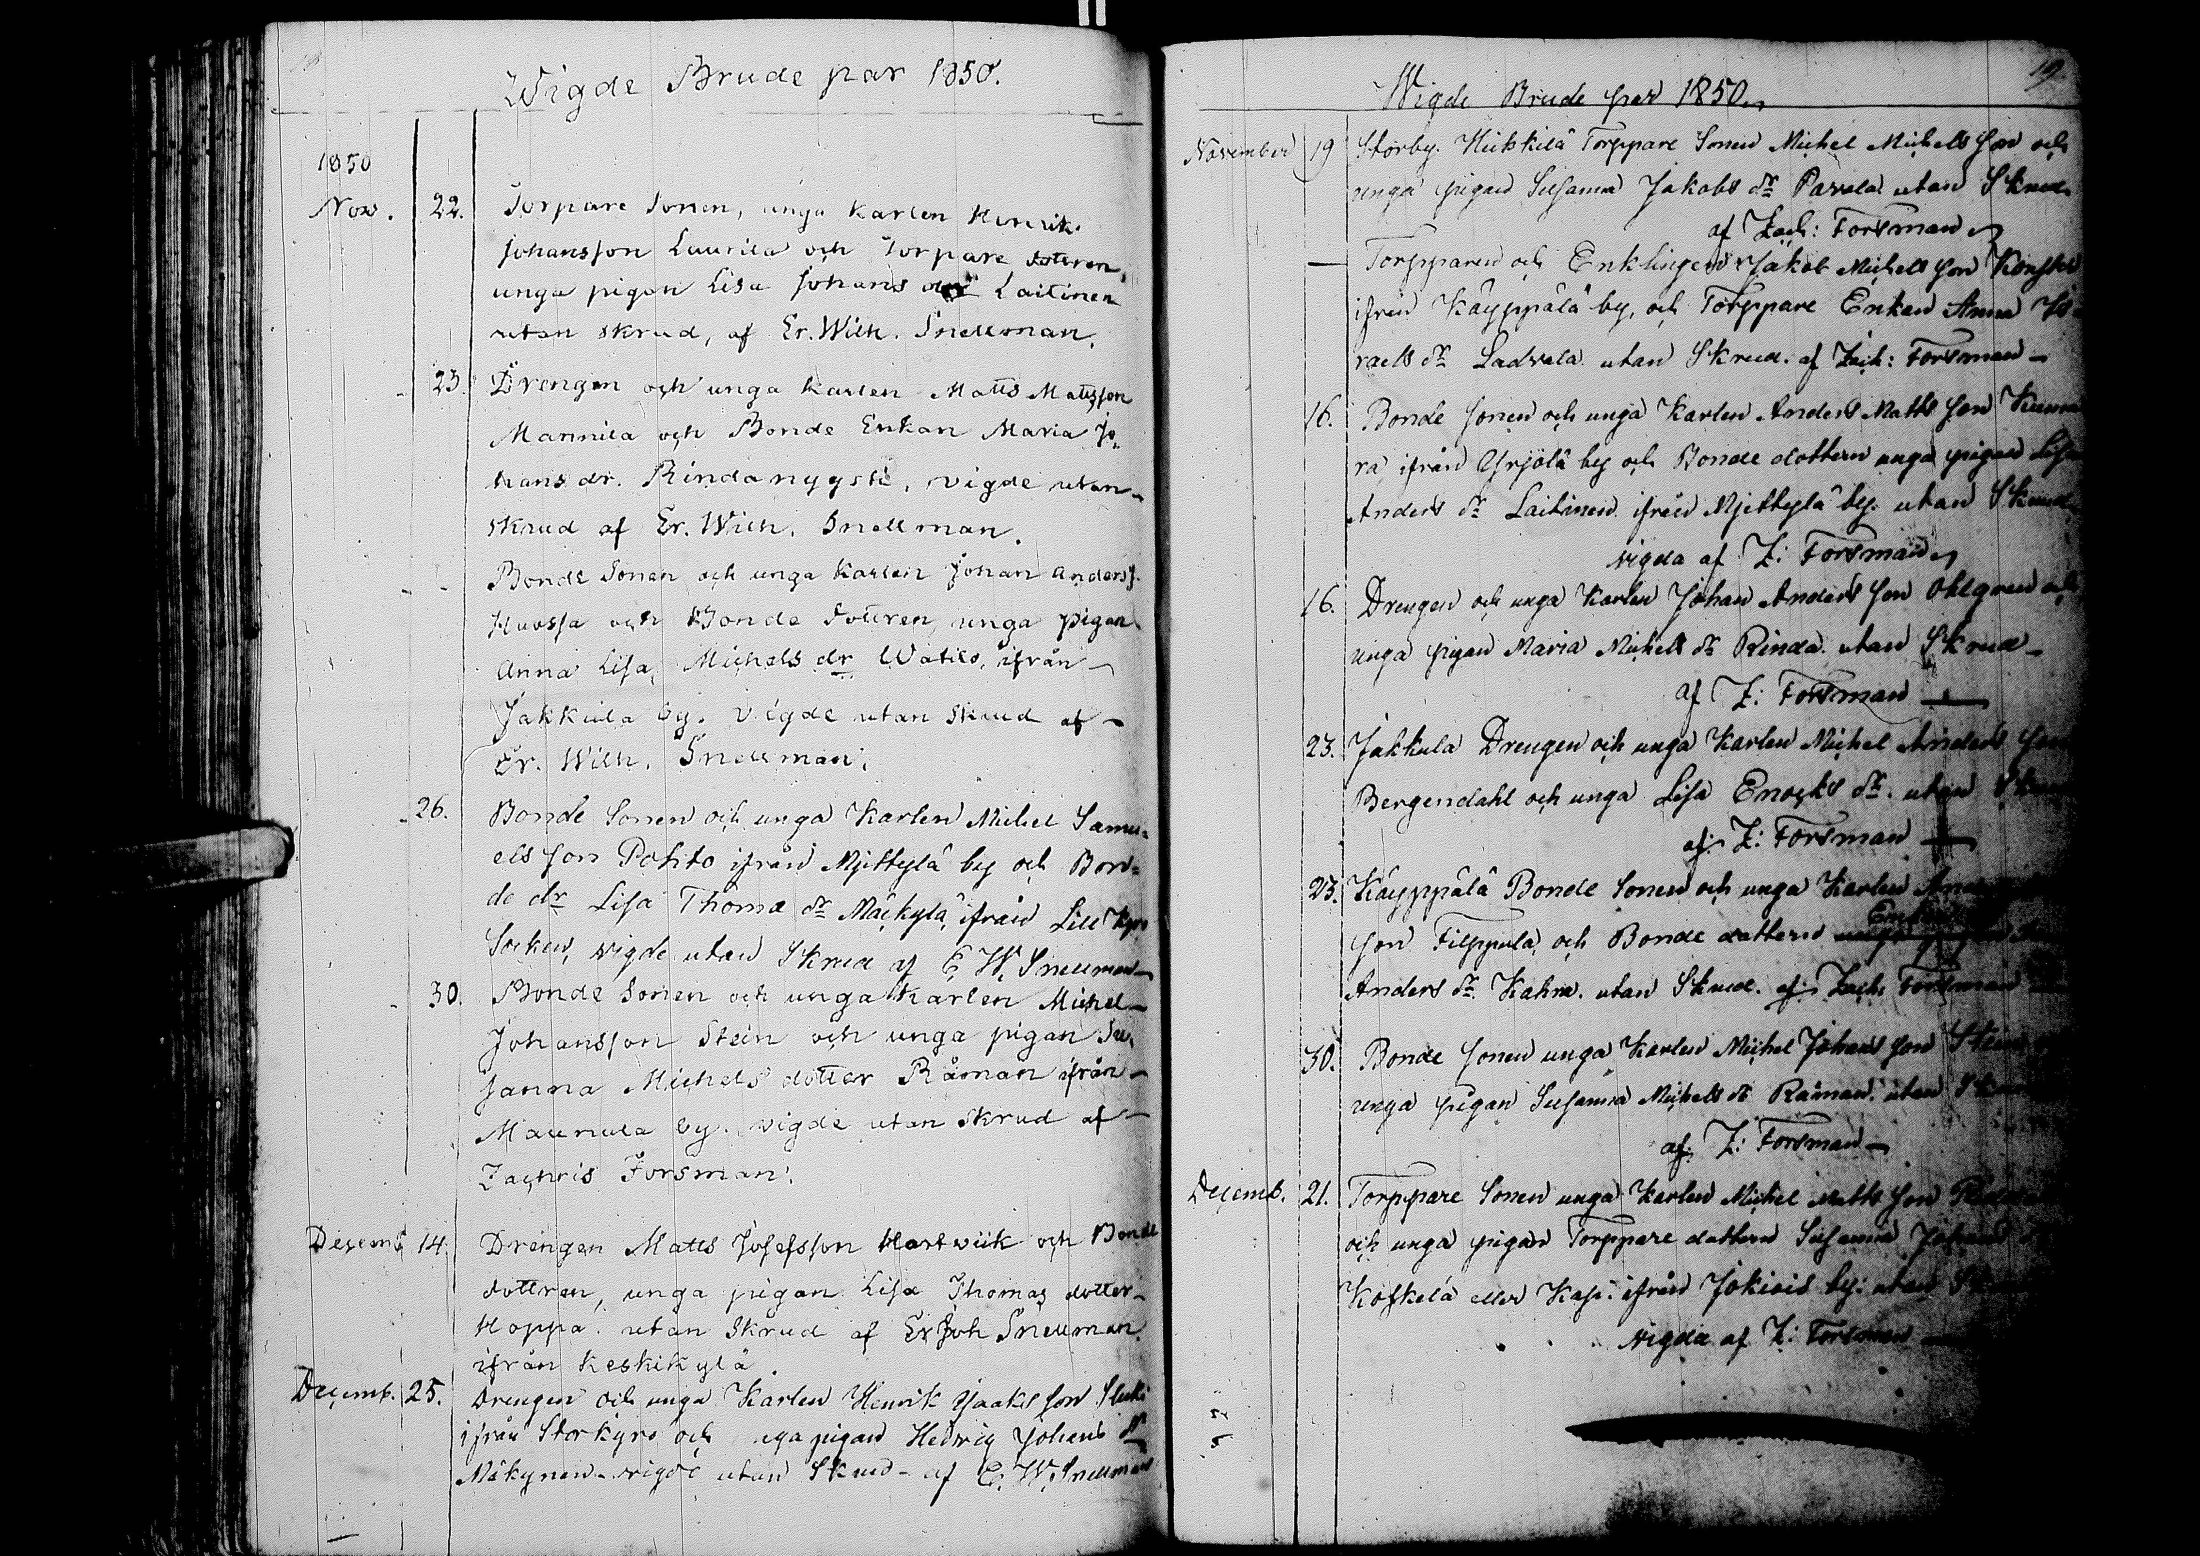 Wigde Brude par 1850.
1850
Nov. 22. Torpare Sonen, unga Karlen Henrik
Johansson Laurila och Torpare dottren,
unga pigan Lisa Johans Laitinen
utan skrud, af Er. Wilh. Snellman.
23. Drengen och unga karlen Matts Matsson
Mannila och Bonde Enkan Maria Jo-
hans dr. Rindanygsti, vigde utan
skrud af Er. Wilh. Snellman.
Bonde Sonen och unga Karlen Johan Anders
och Bonde dottren, unga pigan
Anna Lisa, Michels dr Watilo, ifrån
Jakkula by. vigde utan Skrud af
Er. Wilh. Snellman.
26. Bonde Sonen och unga Karlen Michel Samu-
els son Pohto ifrån Mjettylä by och Bon-
de dr Lisa Thomæ dr Mäckylä, ifrån Lill Kyro
Socken, vigde utan Skrud af E. W. Snellman
30. Bonde Sonen och unga Karlen Michel
Johansson Stein och unga pigan Su-
sanna Michels dotter Råman ifrån
Maunula by. vigde utan Skrud af
Zachris Forsman.
Decemb 14. Drengen Matts Josefsson Hartwiik och Bonde
dottren, unga pigan Lisa Thomas dotter
Hoppa. utan Skrud af Er Joh Snellman.
ifrån Keskikylä
Decemb. 25. Drengen och unga Karlen Henrik Jaaks son
ifrån Storkyro och pigan Hedvig Johans dr
Mäkynen vigde utan Skrud - af E. W. Snellman
19
Wigde Brude par 1850.
November 19 Storby. Hiskkilä Torppare Sonen Michel Michels son och
unga pigan Susanna Jakobs dr Pavola utan Skrud
af Zach: Forsman
Torpparen och Enklingen Jakob Michels son
ifrån Käyppälä by, och Torppare Enkan Anna Is-
raels dr Ladvala utan Skrud. af Zach: Forsman
16. Bonde sonen och unga Karlen Anders Matts son
ra ifrån Yrjölä by och Bonde dottern unga pigan Lisa
Anders dr Laitinen ifrån Mjettylä by. utan Skrud
vigda af Z: Forsman
16. Drengen och unga Karlen Johan Anders son Ohlgren och
unga pigan Maria Michels dr Rinda. utan Skrud
af Z: Forsman
23. Jakkula Drengen och unga Karlen Michel Anders son
Bergendahl och unga Lisa Enocks dr. utan
af: Z: Forsman
23. Käyppälä Bonde Sonen och unga Karlen
son Filppula, och Bonde dottern
Anders dr Kahra. utan Skrud. af: Zach: Forsman
30. Bonde sonen unga Karlen Michel Johans son Stein
unga pigan Susanna Michels dr Råman. utan
af: Z: Forsman
Decemb. 21. Torppare Sonen unga Karlen Michel Matts son
och unga pigan Torppare dottern Susanna
Koskela eller Kasi: ifrån Jokivis by: utan
vigda af Z: Forsman